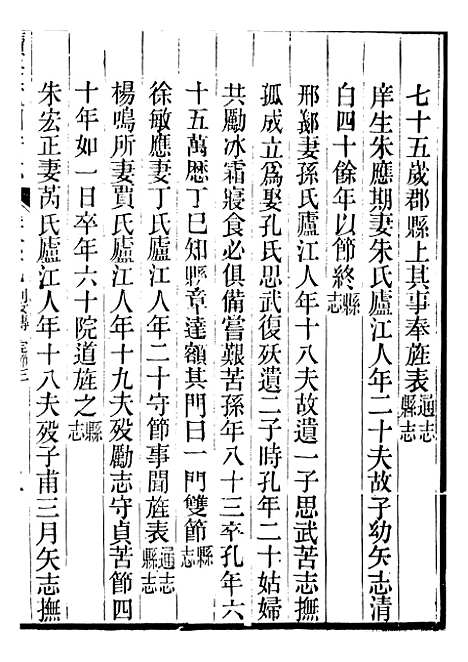 七十五歲郡縣上其事奉旌表通志縣志
庠生朱應期妻朱氏廬江人年二十夫故子幼矢志清
白四十餘年以節終縣志
邢鄒妻孫氏廬江人年十八夫故遺一子思武苦志撫
孤成立爲娶孔氏思武復殀遺二子時孔年二十姑婦
共勵冰霜寢食必俱備嘗艱苦孫年八十三卒孔年六
十五萬厯丁巳知縣章達額其門曰一門雙節縣志
徐敏應妻丁氏廬江人年二十守節事聞旌表通志縣志
楊鳴所妻賈氏廬江人年十九夫歿勵志守貞苦節四
十年如一日卒年六十院道旌之縣志
朱宏正妻芮氏廬江人年十八夫歿子甫三月矢志撫